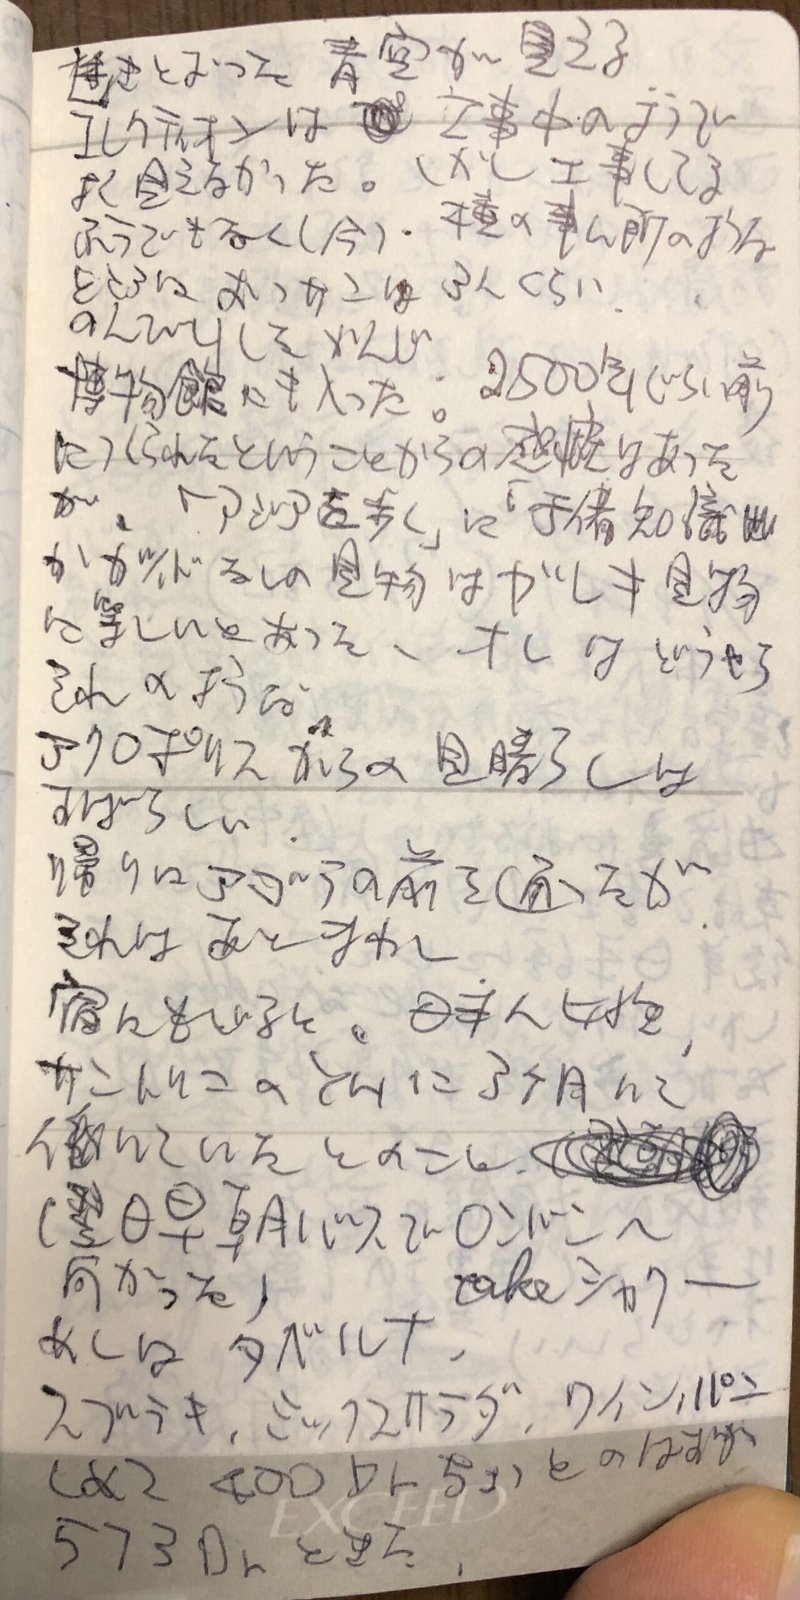 透きとおった 青空が見える
エレクティオンは 工事中のようで
よく見えなかった。しかし工事してる
ふうでもなく(今)・
のんびりしたかんじ
博物館にも入った。2500年ぐらい前
につくられたということからの感慨はあった
が、「アジアを歩く」に「予備知識
かガイドなしの見物はガレキ見物
に等しいとあった、オレはどうやら
それのような
アクロポリスからの見晴らしは
すばらしい.
帰りにアゴラの前を通ったが
それはあとまわし
宿にもどると。日本人女性,
サントリニのとなりに3ヶ月
働いていたとのこと.
(翌日早朝バスでロンドンへ
向かった)
take シャワー
めしは タベルナ,
スブラキ, ミックスサラダ, ワイン, パン
しめて 400Dr ちょっとのはずが
EXCEED
573Dr ときた,